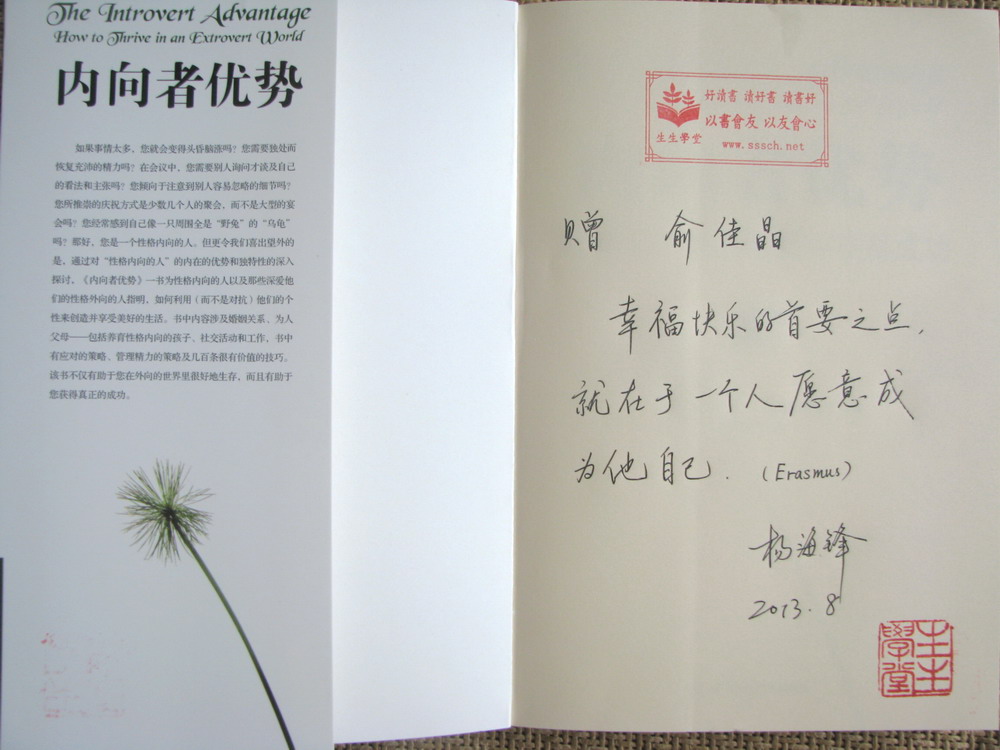 The Introvert Advantage
How to Thrive in an Extrovert World
内向者优势
如果事情太多，您就会变得头昏脑涨吗？您需要独处而
恢复充沛的精力吗？在会议中，您需要别人询问才谈及自己
的看法和主张吗？您倾向于注意到别人容易忽略的细节吗？
您所推崇的庆祝方式是少数几个人的聚会，而不是大型的宴
会吗？您经常感到自己像一只周围全是“野兔”的“乌龟”
吗？那好，您是一个性格内向的人。但更令我们喜出望外的
是，通过对“性格内向的人”的内在的优势和独特性的深入
探讨，《内向者优势》一书为性格内向的人以及那些深爱他
们的性格外向的人指明，如何利用（而不是对抗）他们的个
性来创造并享受美好的生活。书中内容涉及婚姻关系、为人
父母——包括养育性格内向的孩子、社交活动和工作，书中
有应对的策略、管理精力的策略及几百条很有价值的技巧。
该书不仅有助于您在外向的世界里很好地生存，而且有助于
您获得真正的成功。
好讀書 讀好書 讀書好
以書會友 以友會心
生生學堂 www.sssch.net
赠 俞佳晶
幸福快乐的首要之点，
就在于一个人愿意成
为他自己.（Erasmus）
杨海锋
2013.8
生生
學堂